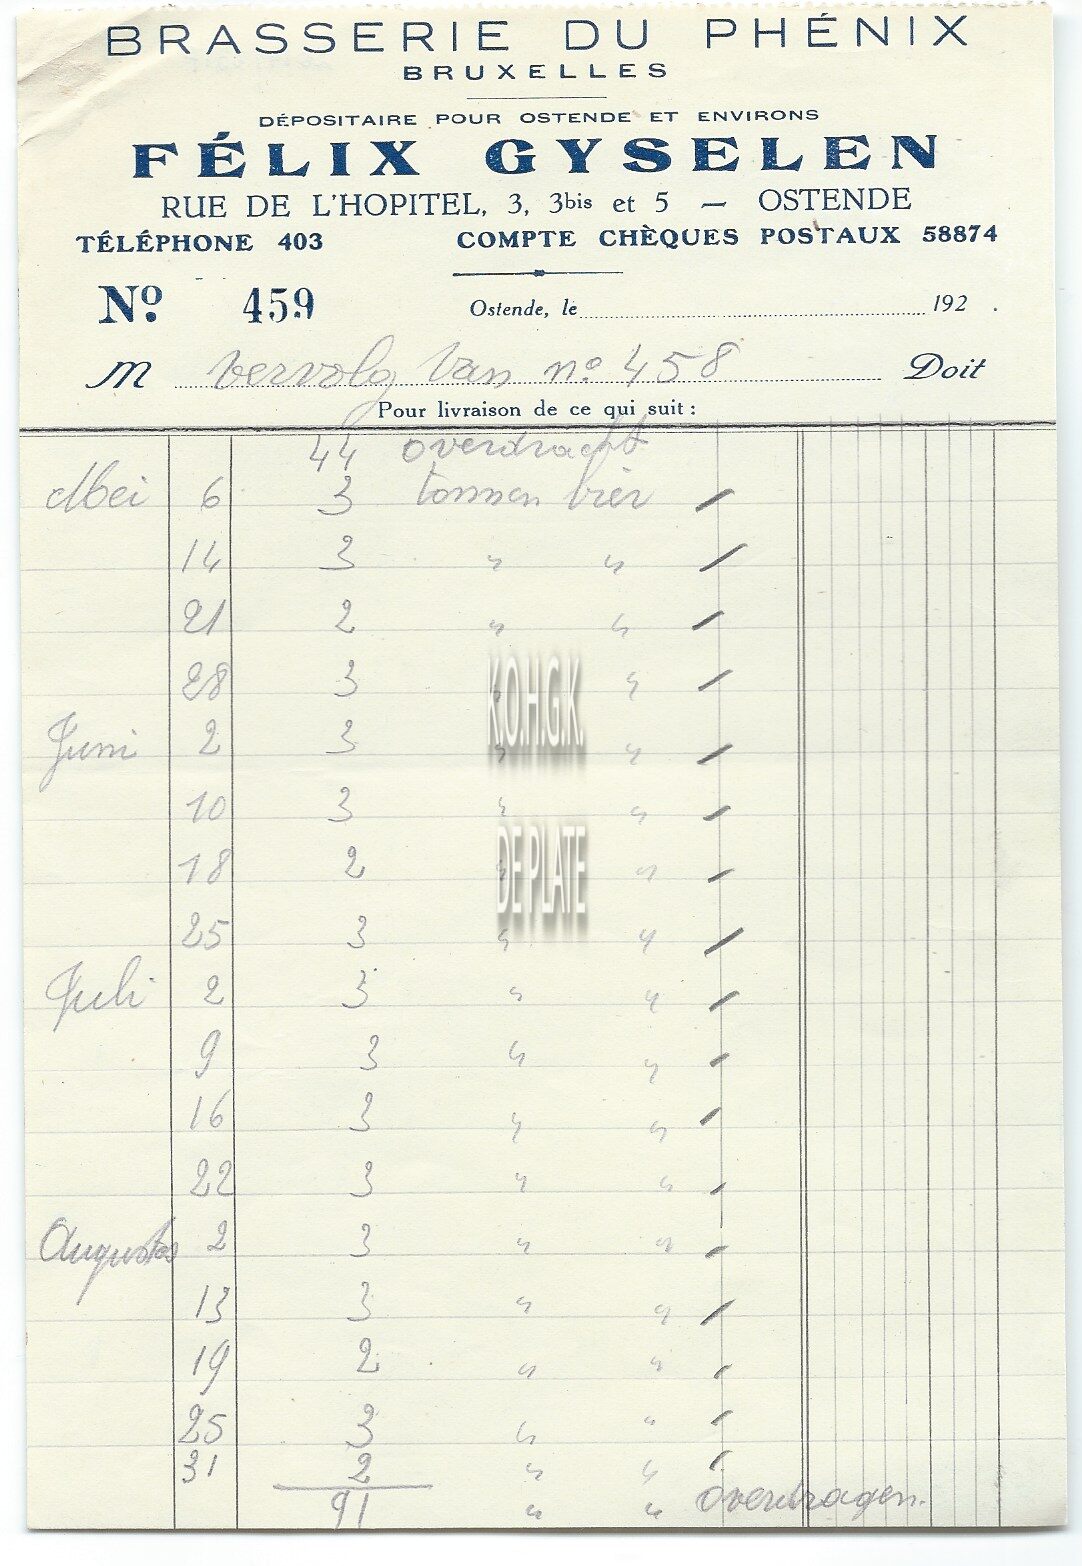 BRASSERIE DU PHÉNIX
BRUXELLES
DÉPOSITAIRE POUR OSTENDE ET ENVIRONS
FÉLIX GYSELEN
RUE DE L'HOPITEL, 3, 3bis et 5 — OSTENDE
TÉLÉPHONE 403 COMPTE CHÈQUES POSTAUX 58874
Nº. 459 Ostende, le 192 .
M vervolg van nº. 458 Doit
Pour livraison de ce qui suit :
44 overdracht
Mei 6 3 tonnen bier /
14 3 " " /
21 2 " " /
28 3 " " /
Juni 2 3 " " /
10 3 " " /
18 2 " " /
25 3 " " /
Juli 2 3 " " /
9 3 " " /
16 3 " " /
22 3 " " /
Augustus 2 3 " " /
13 3 " " /
19 2 " " /
25 3 " " /
31 2 " " /
91 " " overdragen.
K.O.H.G.K.
DE PLATE